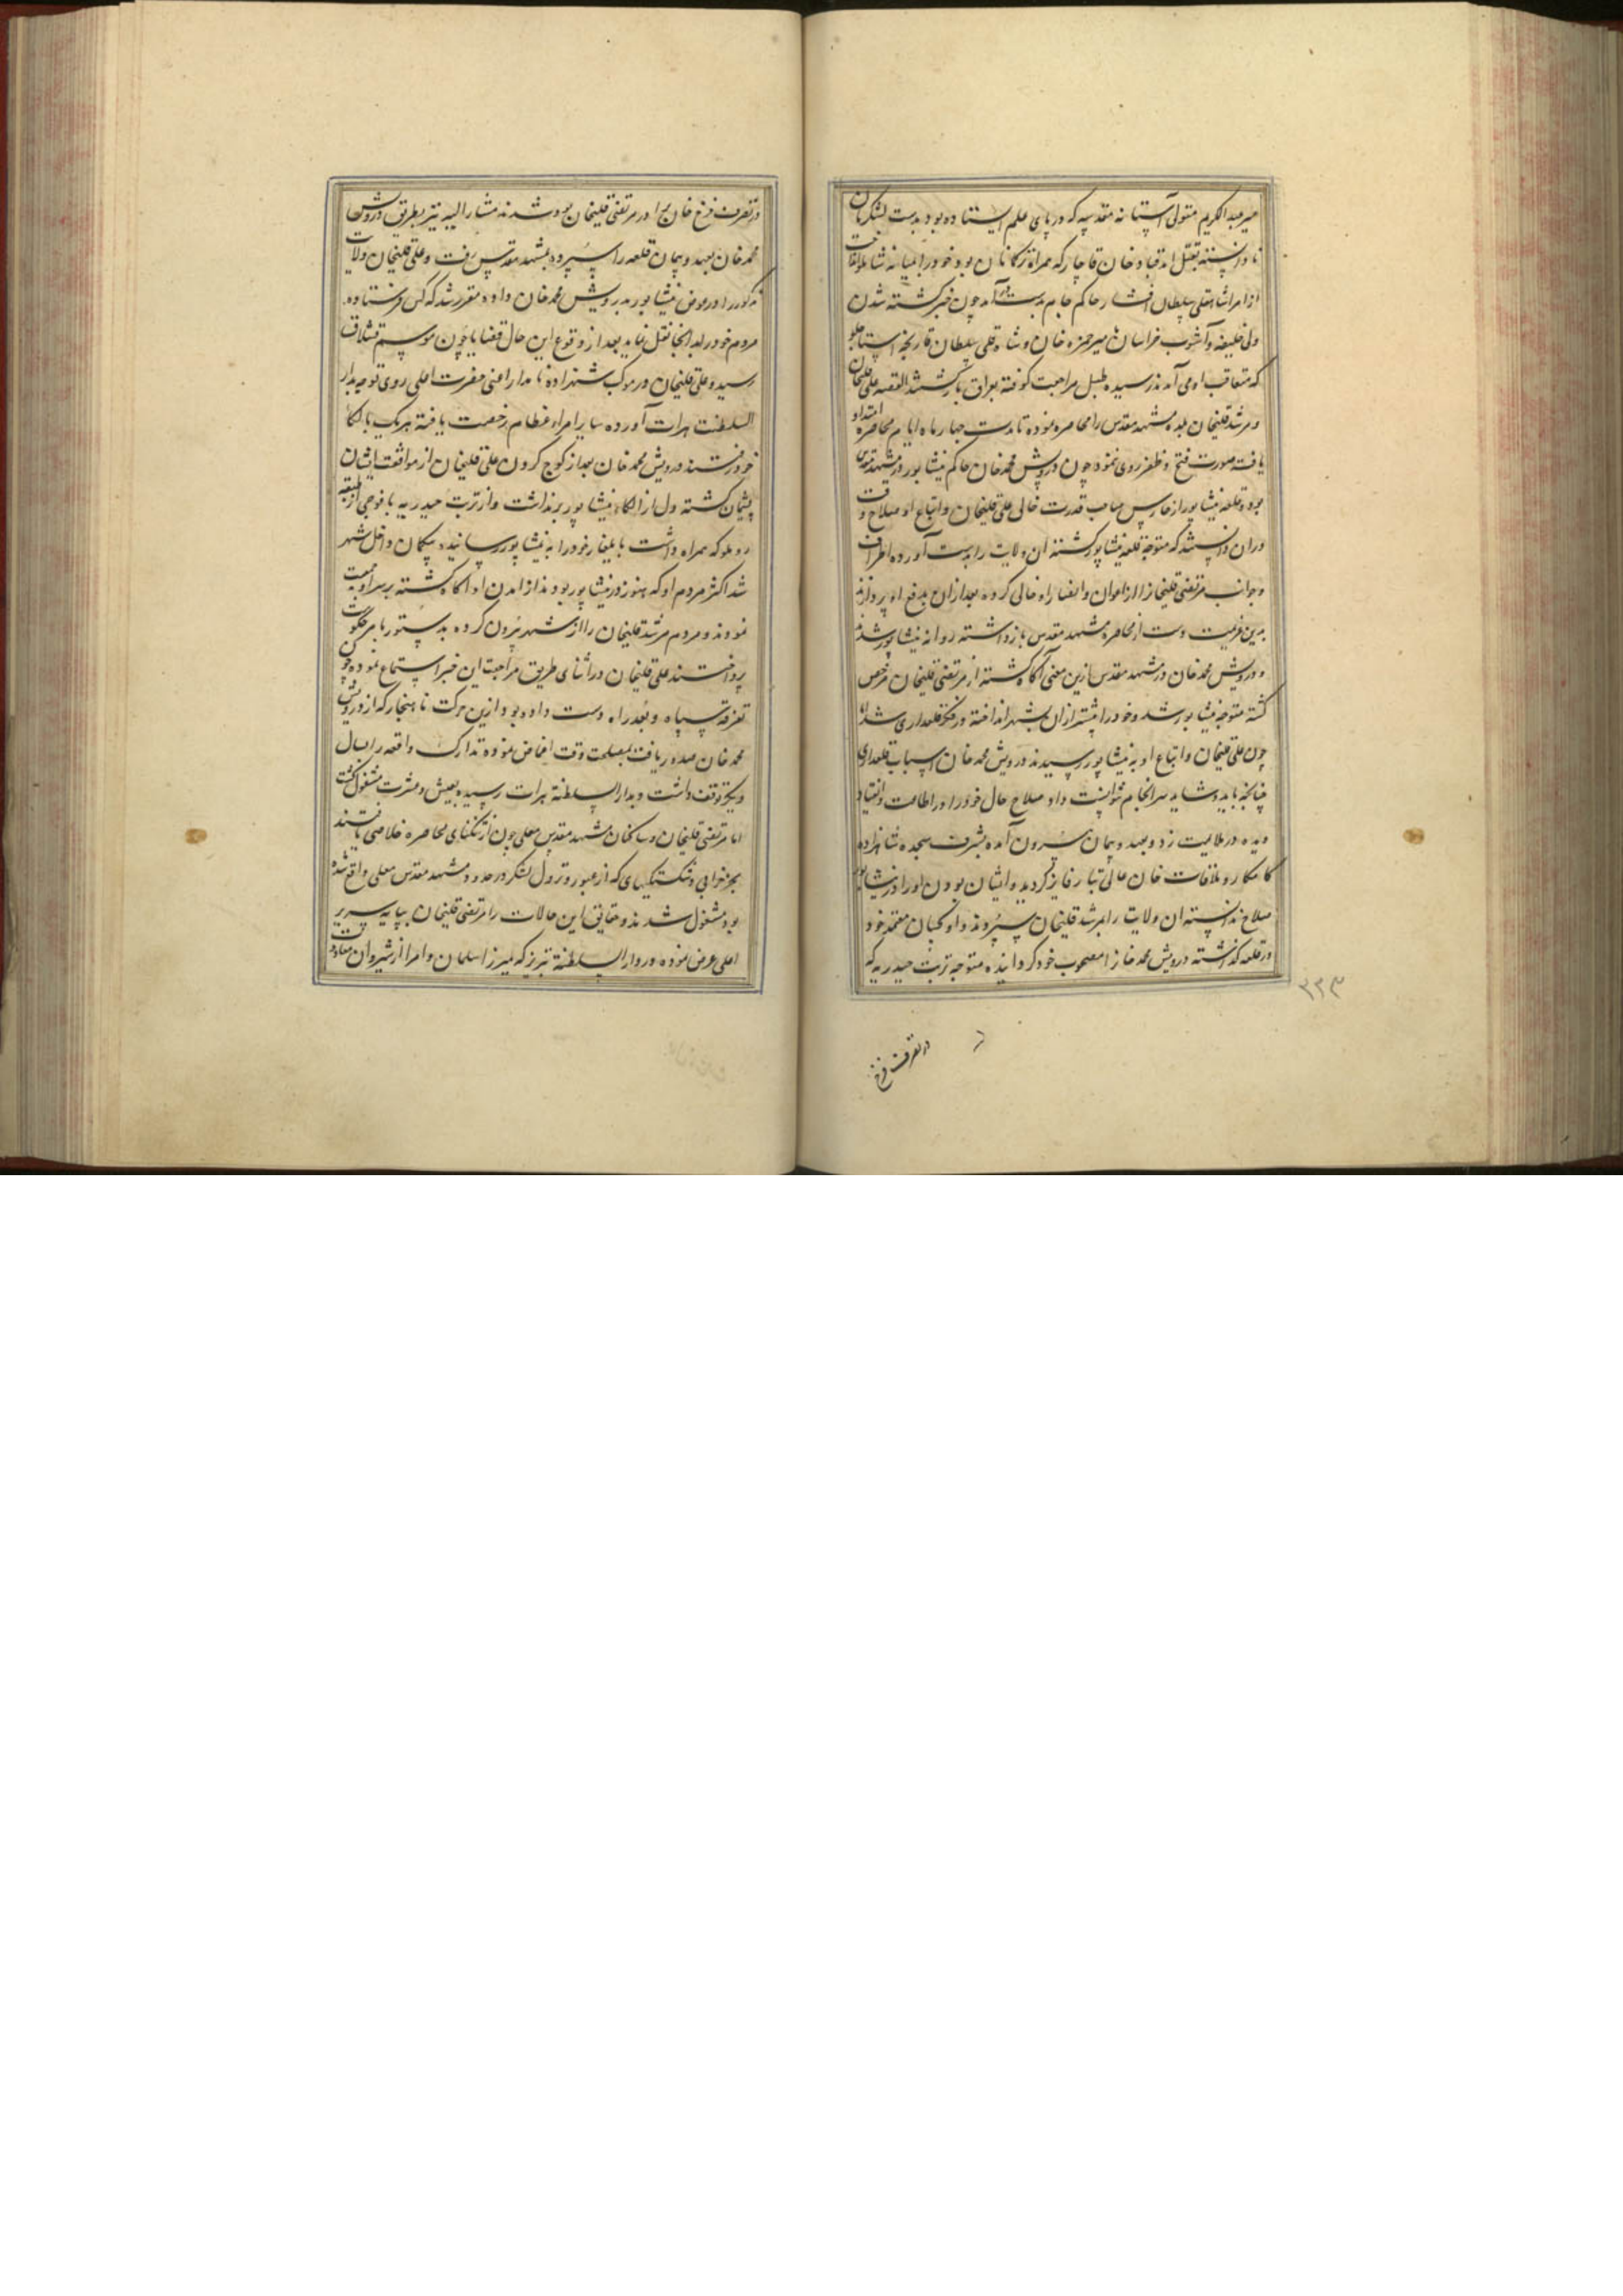 میرعبدالکریم متولی آستانه مقدسه که در پای علم ایستاده بود بدست لشکریان
نادانسته بقتل آمد قباد خان قاجار که همراه ترکمانان بود خود را میانه انداخت
از امرا شاهقلی سلطان افشار حاکم جام بدست در آمد چون خبر کشته شدن
ولی خلیفه و آشوب خراسان بمیرحمزه خان و شاه قلی سلطان قارنجه استاجلو
که متعاقب او می آمدند رسیده طبل مراجعت کوفته بعراق باز گشتند القصه علی قلیخان
و مرشد قلیخان بلده مشهد مقدس را محاصره نموده تا مدت چهار ماه ایام محاصره امتداد
یافت صورت فتح و ظفر روی ننمود چون درویش محمد خان حاکم نیشابور در مشهد مقدس
بود و قلعه نیشابور از حارس صاحب قدرت خالی علی قلیخان و اتباع او صلاح وقت
در آن دانستند که متوجه قلعه نیشابور گشته آن ولایت را بدست آورده اطراف
و جوانب مرتضی قلیخانرا از اعوان و انصار او خالی کرده بعد از آن بدفع او پردازند
بدین عزیمت دست از محاصره مشهد مقدس بازداشته روانه نیشابور شدند
و درویش محمد خان در مشهد مقدس ازین معنی آگاه گشته از مرتضی قلیخان مرخص
گشته متوجه نیشابور شد و خود را پیشتر از آن بشهر انداخته در فکر قلعه داری شد اما
چون علی قلیخان و اتباع او به نیشابور رسیدند درویش محمد خان اسباب قلعداری
چنانچه باید و شاید سرانجام نتوانست داد صلاح حال خود را در اطاعت و انقیاد
دیده در ملایمت زد و بعهد و پیمان بیرون آمده بشرف سجده شاهزاده
کامکار و ملاقات خان عالی تبار فایز گردید و ایشان بودن او را در نیشابور
صلاح ندانسته آن ولایت را بمرشد قلیخان سپردند و او کسان معتمد خود
در قلعه گذاشته درویش محمد خانرا مصحوب خود گردانیده متوجه تربت حیدریه که
۳۳۳
در تصرف فرخ
در تصرف فرخ خان برادر مرتضی قلیخان بود شدند مشارالیه نیز بطریق درویش
محمد خان بعهد و پیمان قلعه را سپرده بمشهد مقدس رفت و علی قلیخان ولایت
مذکور را در عوض نیشابور بدرویش محمد خان داده مقرر شد که کس فرستاده
مردم خود را بدانجا نقل نماید بعد از وقوع این حال قضایا چون موسم قشلاق
رسید و علی قلیخان در موکب شهزاده نامدار اعنی حضرت اعلی روی توجه بدار
السلطنت هرات آورده سایر امراء عظام رخصت یافته هر یک بالکاء
خود رفتند درویش محمد خان بعد از کوچ کردن علی قلیخان از موافقت ایشان
پشیمان گشته دل از الکاء نیشابور برنداشت و از تربت حیدریه با فوجی از طبقه
روملو که همراه داشت بایلغار خود را به نیشابور رسانیده بیکمان داخل شهر
شد اکثر مردم او که هنوز در نیشابور بودند از آمدن او آگاه گشته بر سر او جمعیت
نمودند و مردم مرشد قلیخان را از شهر بیرون کرده بدستور بامر حکومت
پرداختند علی قلیخان در اثنای طریق مراجعت این خبر استماع نموده چون
تفرقه سپاه و بعد راه دست داده بود ازین حرکت ناهنجار که از درویش
محمد خان صدور یافت بمصلحت وقت اغماض نموده تدارک واقعه را بسال
دیگر موقوف داشت و بدار السلطنه هرات رسیده بعیش و عشرت مشغول گشت
اما مرتضی قلیخان و ساکنان مشهد مقدس معلی چون از تنگنای محاصره خلاصی یافتند
بجبر خرابی و شکستگیهای که از عبور و نزول لشکر در حدود مشهد مقدس معلی واقع شده
بود مشغول شدند و حقایق این حالات را مرتضی قلیخان بپایه سریر
اعلی عرض نموده در دار السلطنه تبریز که میرزا سلمان و امرا از شیروان معاودت